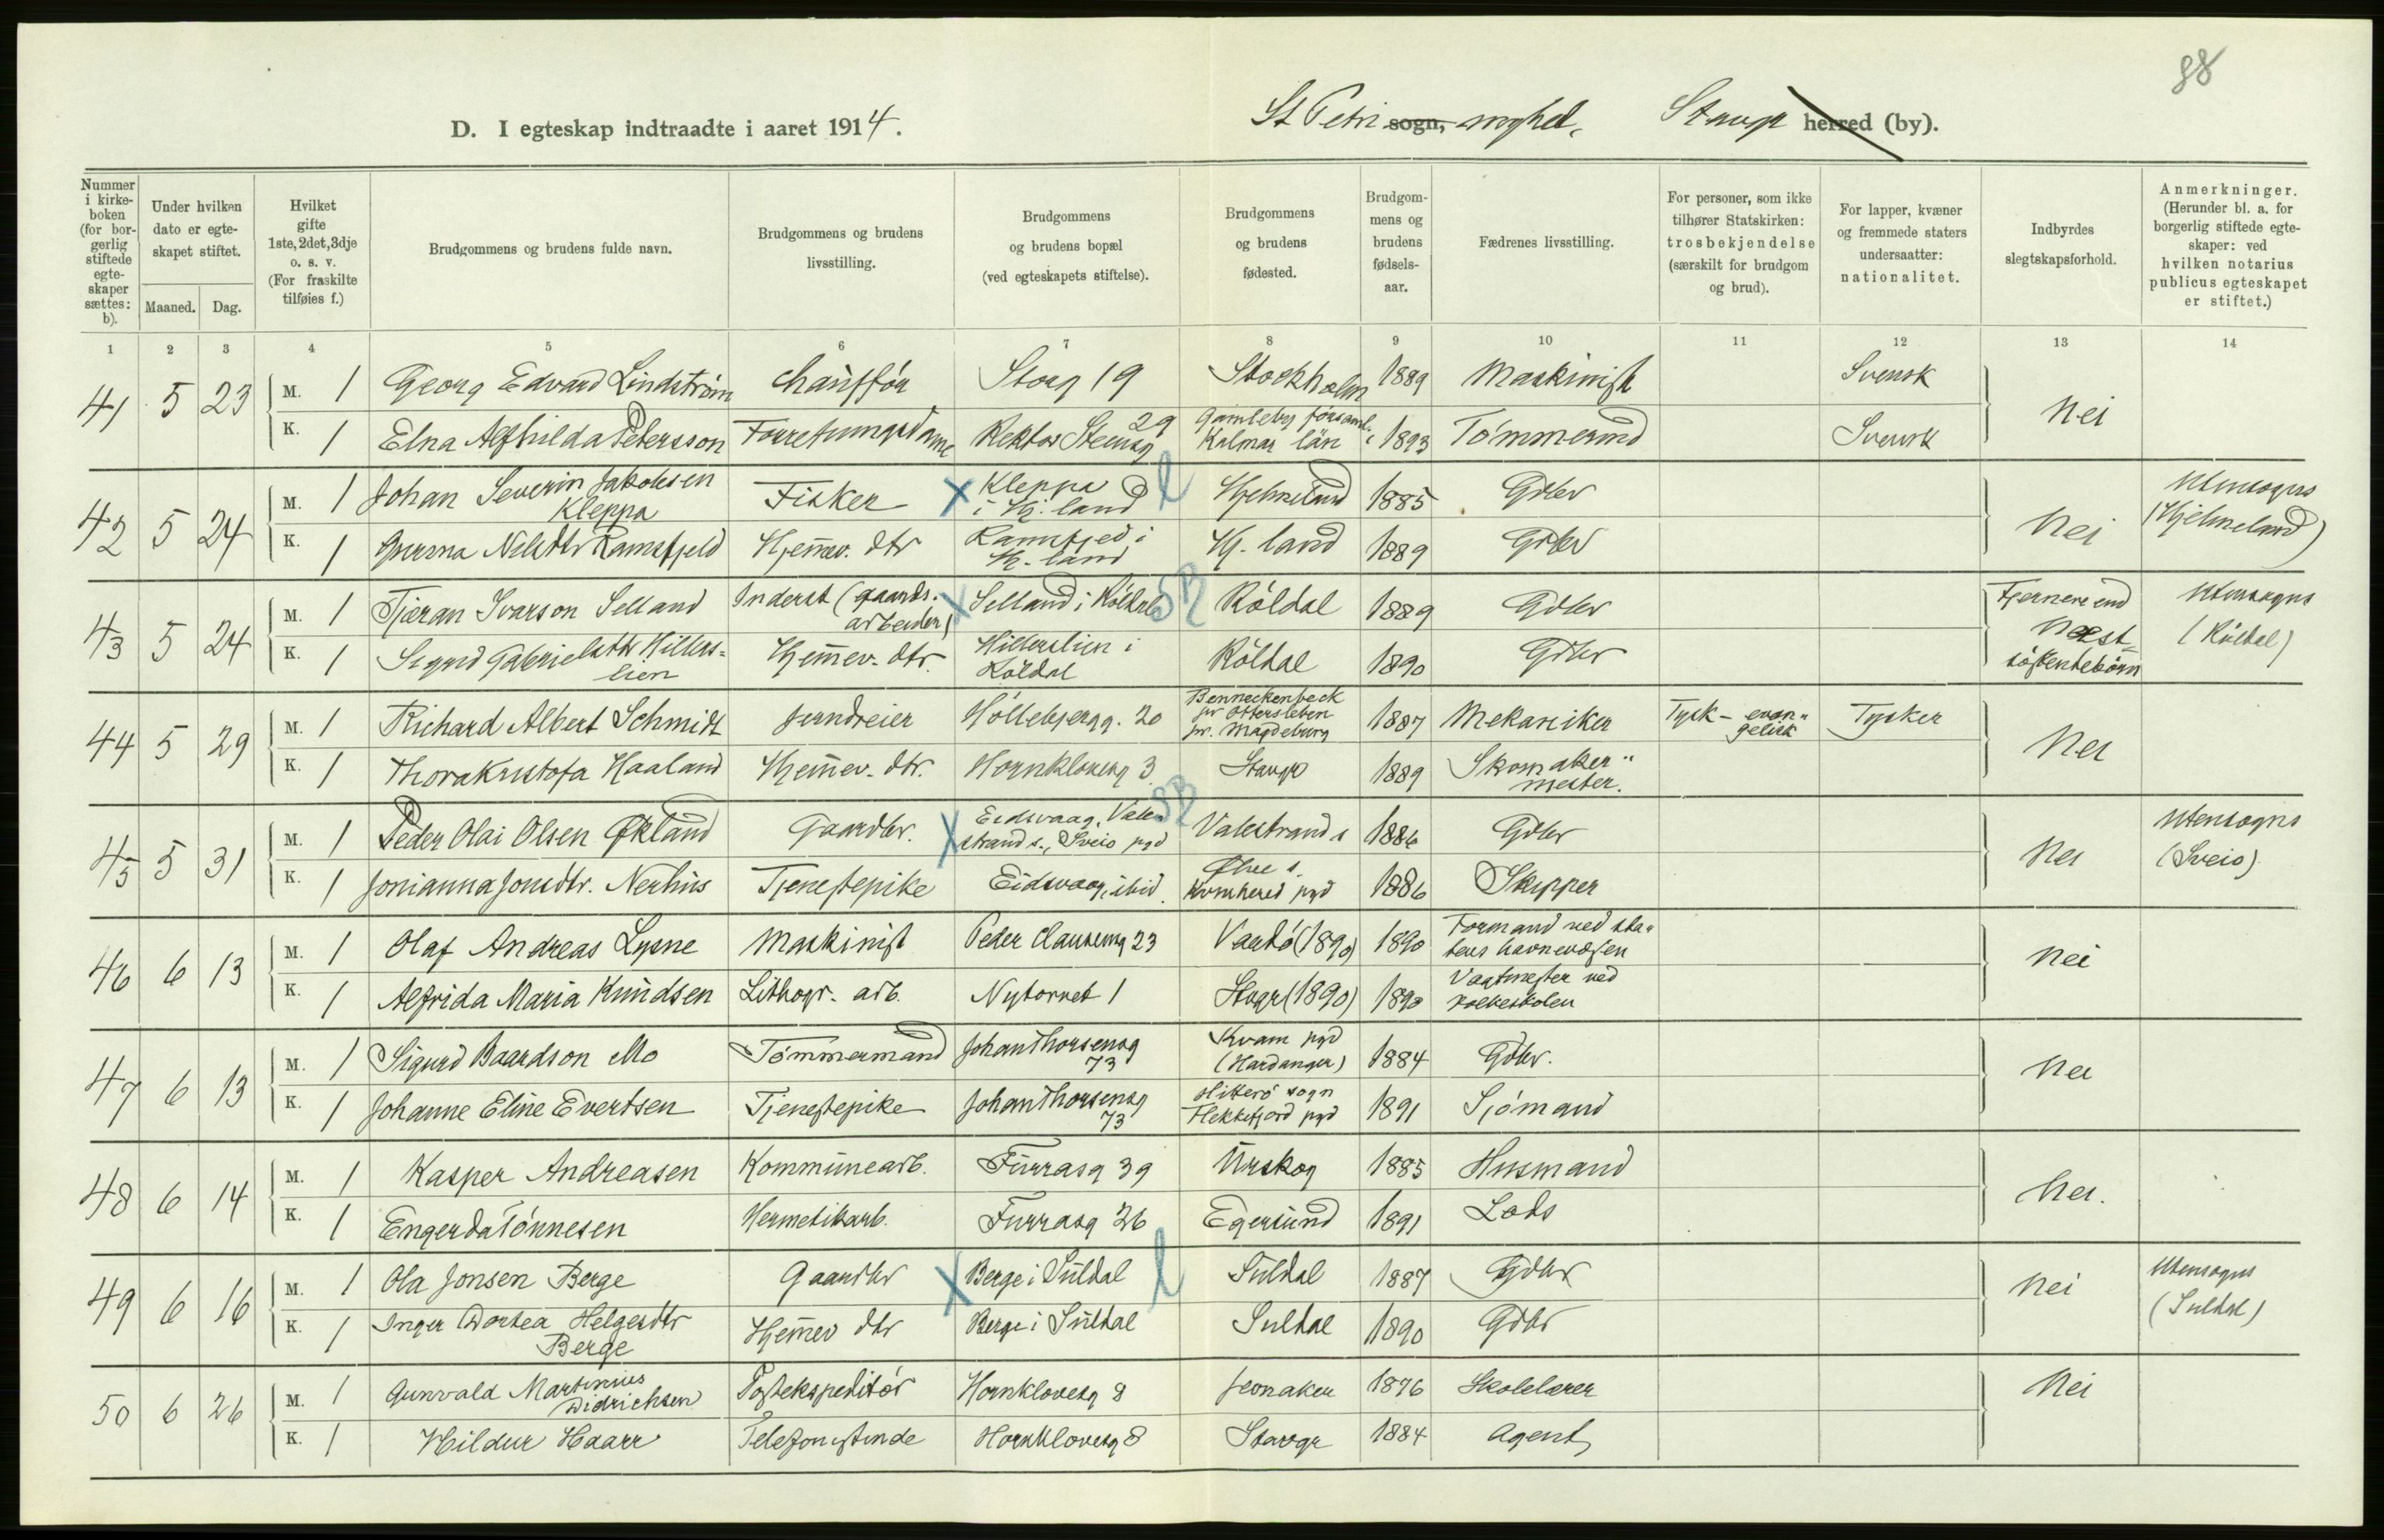 88
D. I egteskap indtraadte i aaret 1914.
St Petri sogn, Stavgr herred (by).
Nummer i kirke-boken (for bor-gerlig stiftede egte-skaper sættes: b).
Under hvilken dato er egte-skapet stiftet.
Maaned. Dag.
Hvilket gifte 1ste, 2det, 3dje o. s. v. (For fraskilte tilføies f.)
Brudgommens og brudens fulde navn.
Brudgommens og brudens livsstilling.
Brudgommens og brudens bopæl (ved egteskapets stiftelse).
Brudgommens og brudens fødested.
Brudgom-mens og brudens fødsels-aar.
Fædrenes livsstilling.
For personer, som ikke tilhører Statskirken: trosbekjendelse (særskilt for brudgom og brud).
For lapper, kvæner og fremmede staters undersaatter: nationalitet.
Indbyrdes slegtskapsforhold.
Anmerkninger. (Herunder bl. a. for borgerlig stiftede egte-skaper: ved hvilken notarius publicus egteskapet er stiftet.)
1 2 3 4 5 6 7 8 9 10 11 12 13 14
41 5 23 M. 1 Georg Edvard Lindström Chaufför Storg 19 Stockholm 1889 Maskinist Svensk Nei
K. 1 Elna Alfhilda Petersson Forretningsdame Rektor Steensg 29 Gamleby församl. Kalmar län 1893 Tömmermand Svensk
42 5 24 M. 1 Johan Severin Jakobsen Kleppa Fisker x Kleppa i Hj.land l Hjelmeland 1885 Gdbr Nei Utensogns (Hjelmeland)
K. 1 Nilsdtr Ramsfjeld Hjemmev. dtr Ramsfjed i Hj.land Hj.land 1889 Gdbr
43 5 24 M. 1 Tjæran Ivarson Selland Inderst (gaards-arbeider) x Selland i Röldal SB Röldal 1889 Gdbr Fjernere end næst-söskendebörn Utensogns (Röldal)
K. 1 Sigrid Gabrielsdtr Hillers-lien Hjemmev. dtr. Hillerslien i Röldal Röldal 1890 Gdbr
44 5 29 M. 1 Richard Albert Schmidt Jerndreier Höllebjergg. 20 Benneckenbeck pr Ottersleben pr. Magdeburg 1887 Mekaniker Tysk-evan-gelisk Tysker Nei
K. 1 Thora Kristofa Haaland Hjemmev. dtr. Hornklovesg 3 Stavgr 1889 Skomaker-mester.
45 5 31 M. 1 Peder Olai Olsen Økland Gaardbr. x Eidsvaag, Vale-strand s., Sveio pgd SB Valestrand s 1886 Gdbr Nei Utensogns (Sveio)
K. 1 Jonianna Jonsdtr. Nerhus Tjenestepike Eidsvaag, ibid. Ølve s. Kvinnherred pgd 1886 Skipper
46 6 13 M. 1 Olaf Andreas Lysne Maskinist Peder Clausensg 23 Vardö (1890) 1890 Formand ved sta-tens havnevæsen Nei
K. 1 Alfrida Maria Knudsen Lithogr. arb. Nytorvet 1 Stvgr (1890) 1890 Vagtmester ved folkeskolen
47 6 13 M. 1 Sigurd Baardson Mo Tömmermand Johan Thorsensg 73 Kvam pgd (Hardanger) 1884 Gdbr. Nei
K. 1 Johanne Eline Evertsen Tjenestepike Johan Thorsensg 73 Hitterö sogn Flekkefjord pgd 1891 Sjömand
48 6 14 M. 1 Kasper Andreasen Kommunearb. Furrasg 39 Urskog 1885 Husmand Nei.
K. 1 Engerda Tönnesen Hermetikarb. Furrasg 26 Egersund 1891 Lods
49 6 16 M. 1 Ola Jonsen Berge Gaardbr x Berge i Suldal l Suldal 1887 Gdbr Nei Utensogns (Suldal)
K. 1 Inger Dortea Helgesdtr Berge Hjemmev dtr Berge i Suldal Suldal 1890 Gdbr
50 6 26 M. 1 Gunvald Martinius Didrichsen Postekspeditör Hornklovesg 8 1876 Skolelærer Nei
K. 1 Hildur Haarr Telefonistinde Hornklovesg 8 Stavgr 1884 Agent